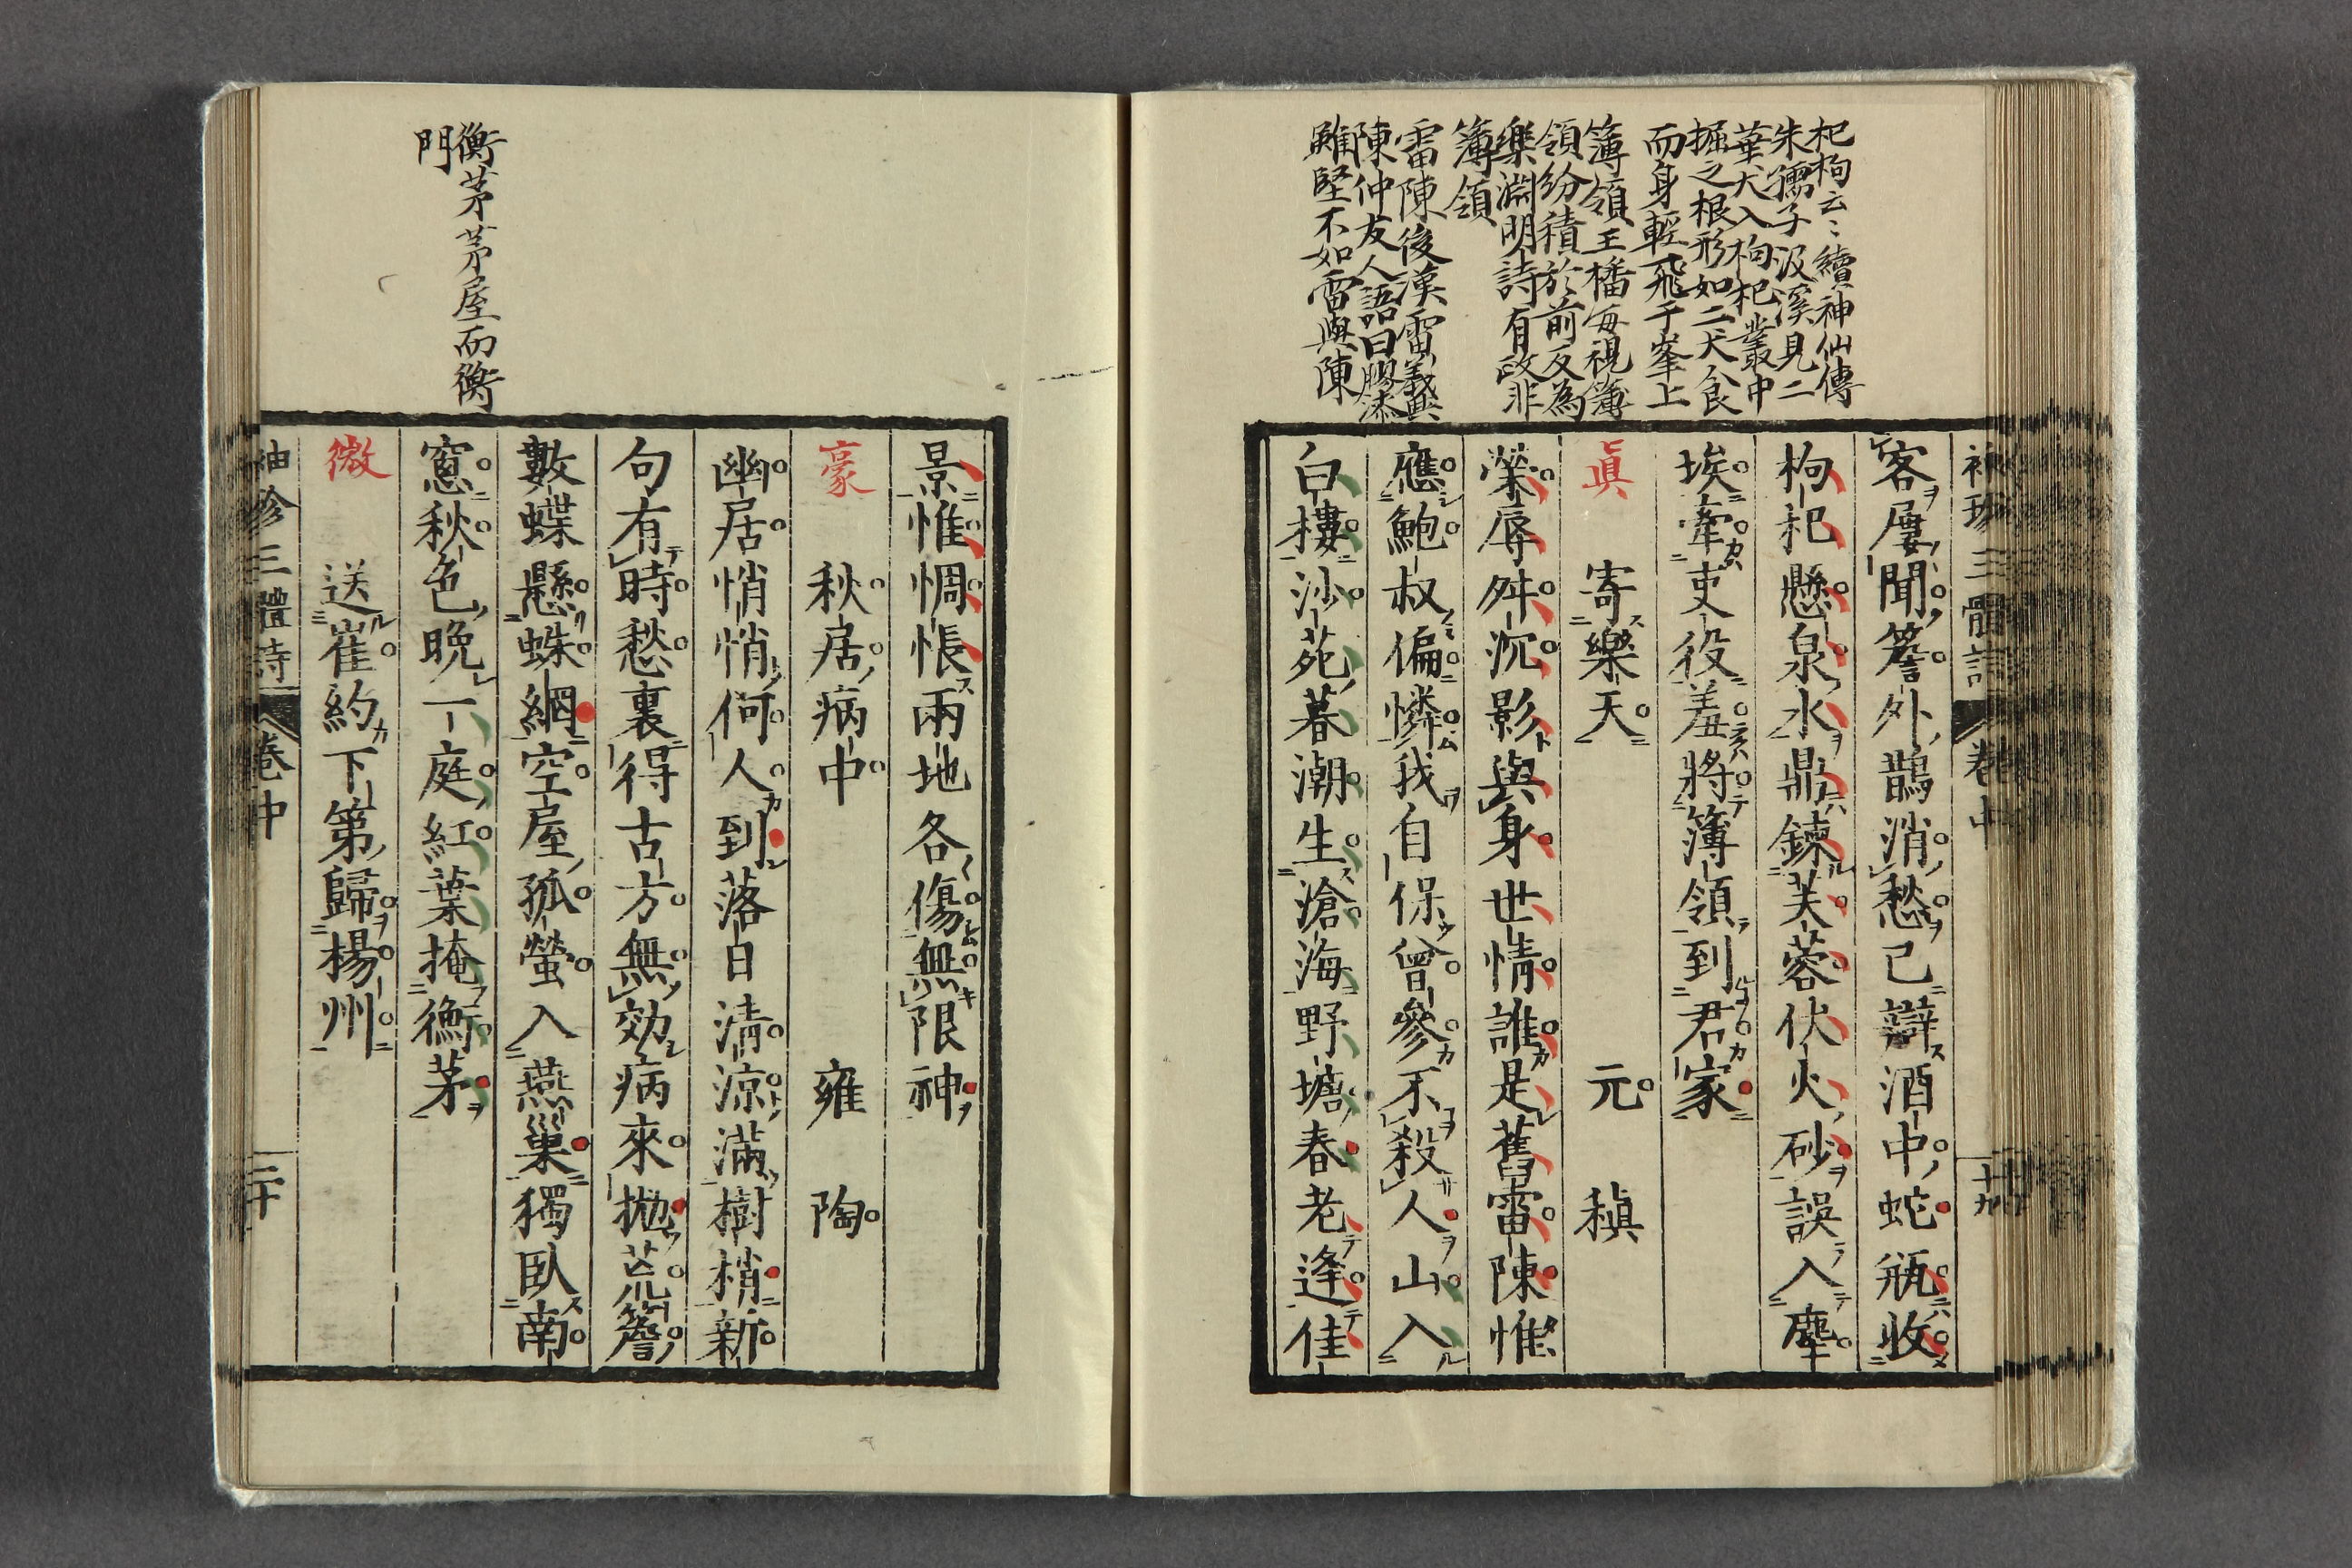 杞枸云〻續神仙傳
朱孺子汲溪見二
華犬入枸杞叢中
掘之根形如二犬食
而身輕飛于峯上
簿領王橋每視簿
領紛積於前反為
樂淵明詩有政非
簿領
雷陳後漢雷義與
陳仲友人語曰膠漆
雖堅不如雷與陳
客屢聞簷外鵲消愁已辯酒中蛇瓶收
枸杞懸泉水鼎鍊芙蓉伏火砂誤入塵
埃牽吏役羞將簿領到君家
眞 寄樂天 元稹
榮辱舛沉影與身世情誰是舊雷陳惟
應鮑叔偏憐我自保曾參不殺人山入
白樓沙苑暮潮生滄海野塘春老逢佳
衡茅茅屋而衡
門
景惟惆悵兩地各傷無限神
豪 秋居病中 雍陶
幽居悄悄何人到落日淸涼滿樹梢新
句有時愁裏得古方無効病來抛荒簷
數蝶懸蛛網空屋孤螢入燕巢獨臥南
窓秋色晚一庭紅葉掩衡茅
微 送崔約下第歸楊州
袖珍三體詩 卷中 二十